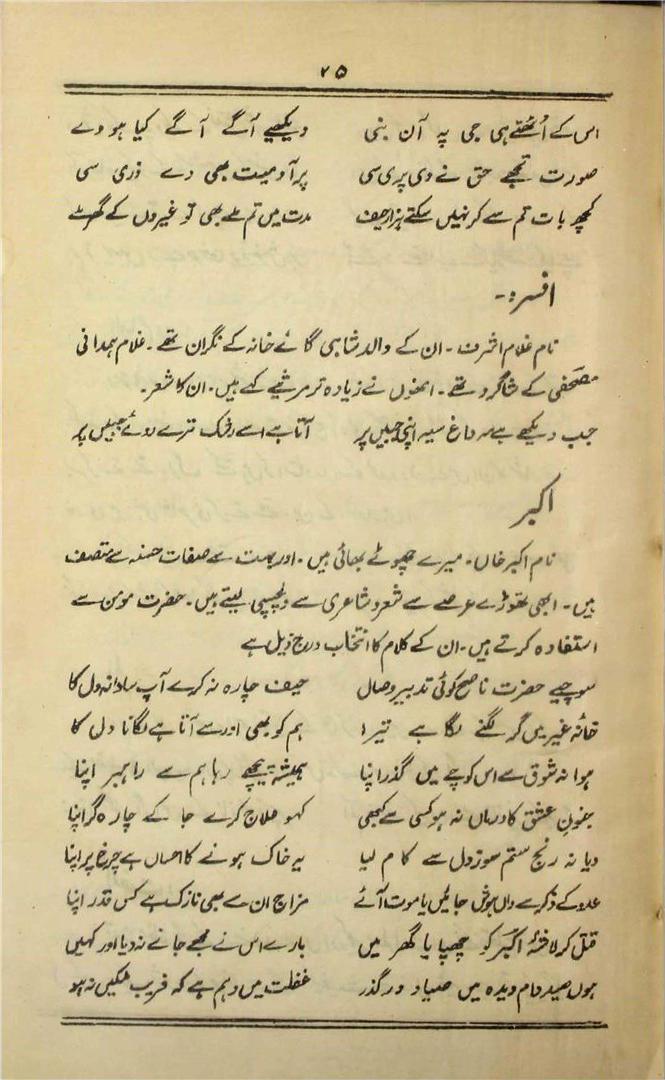 ۲۵
اس کے اُٹھتے ہی جی پہ آن بنی دیکھیے آگے آگے کیا ہو وے
صورت تجھے حق نے دی پری سی پر آدمیت بھی دے ذری سی
کچھ بات تم سے کر نہیں سکتے ہزار حیف مدت میں تم ملے بھی تو غیروں کے گھر ملے
افسر:-
نام غلام اشرف۔ ان کے والد شاہی گائے خانہ کے نگران تھے۔ غلام ہمدانی
مصحفی کے شاگرد تھے۔ انھوں نے زیادہ تر مرثیے کہے ہیں۔ ان کا شعر۔
جب دیکھے ہے مہ داغ سیہ اپنی جبیں پر آتا ہے اسے رشک ترے روئے جبیں پر
اکبر
نام اکبر خاں۔ میرے چھوٹے بھائی ہیں۔ اور بہت سے صفات حسنہ سے متصف
ہیں۔ ابھی تھوڑے عرصے سے شعر و شاعری سے دلچسپی لیتے ہیں۔ حضرت مومن سے
استفادہ کرتے ہیں۔ ان کے کلام کا انتخاب درج ذیل ہے
سوچیے حضرت ناصح کوئی تدبیر وصال حیف چارہ نہ کرے آپ سا دانہ دل کا
خانۂ غیر میں گر لگنے لگا ہے تیرا ہم کو بھی اور سے آتا ہے لگانا دل کا
ہوا نہ شوق سے اس کوچے میں گذر اپنا ہمیشہ پیچھے رہا ہم سے راہبر اپنا
جنونِ عشق کا درماں نہ ہو کسی سے کبھی کہو علاج کرے جا کے چارہ گر اپنا
دیا نہ رنج ستم سوز دل سے کام لیا یہ خاک ہونے کا احساں ہے چرخ پر اپنا
عدو کے ذکر سے واں ہوش جائیں یا موت آئے مزاج ان سے بھی نازک ہے کس قدر اپنا
قتل کر لاشۂ اکبر کو چھپایا گھر میں بارے اس نے مجھے جانے نہ دیا اور کہیں
ہوں صید دام دیدہ میں صیاد درگذر غفلت میں وہم ہے کہ فریب کمیں نہ ہو